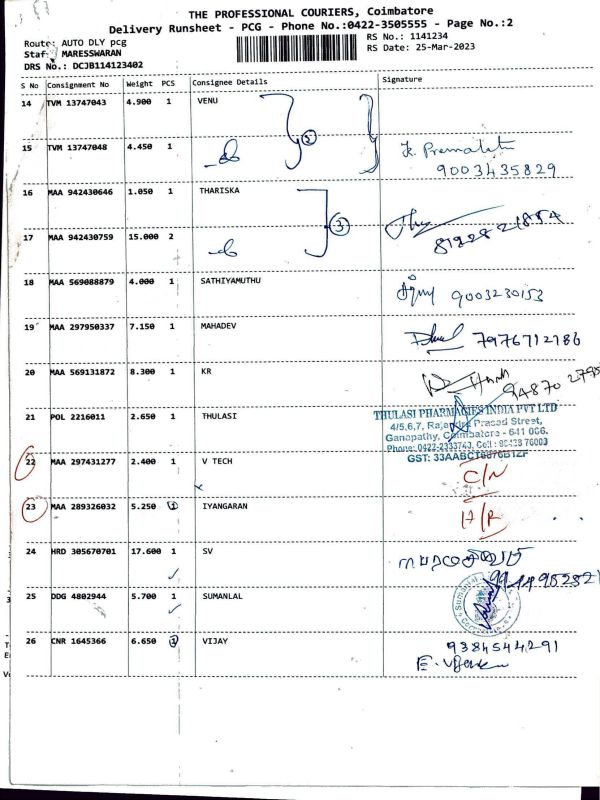 THE PROFESSIONAL COURIERS, Coimbatore
Delivery Runsheet - PCG - Phone No.:0422-3505555 - Page No.:2
Route: AUTO DLY pcg
RS No.: 1141234
Staf: MARESSWARAN
RS Date: 25-Mar-2023
DRS No.: DCJB114123402
S No Consignment No Weight PCS Consignee Details Signature
14 TVM 13747043 4.900 1 VENU
2
15 TVM 13747048 4.450 1
K. Premalatha
9003435829
16 MAA 942430646 1.050 1 THARISKA
3
17 MAA 942430759 15.000 2
18 MAA 569088879 4.000 1 SATHIYAMUTHU
9003230153
19 MAA 297950337 7.150 1 MAHADEV
7976712786
20 MAA 569131872 8.300 1 KR
21 POL 2216011 2.650 1 THULASI
THULASI PHARMACIES INDIA PVT LTD
4/5,6,7, Rajendra Prasad Street,
Ganapathy, Coimbatore - 641 006.
Phone: 0422-2333743, Cell : 76003
22 MAA 297431277 2.400 1 V TECH
C/N
23 MAA 289326032 5.250 1 IYANGARAN
H/R
24 HRD 305670701 17.600 1 SV
25 DDG 4802944 5.700 1 SUMANLAL
26 CNR 1645366 6.650 1 VIJAY
9384544291